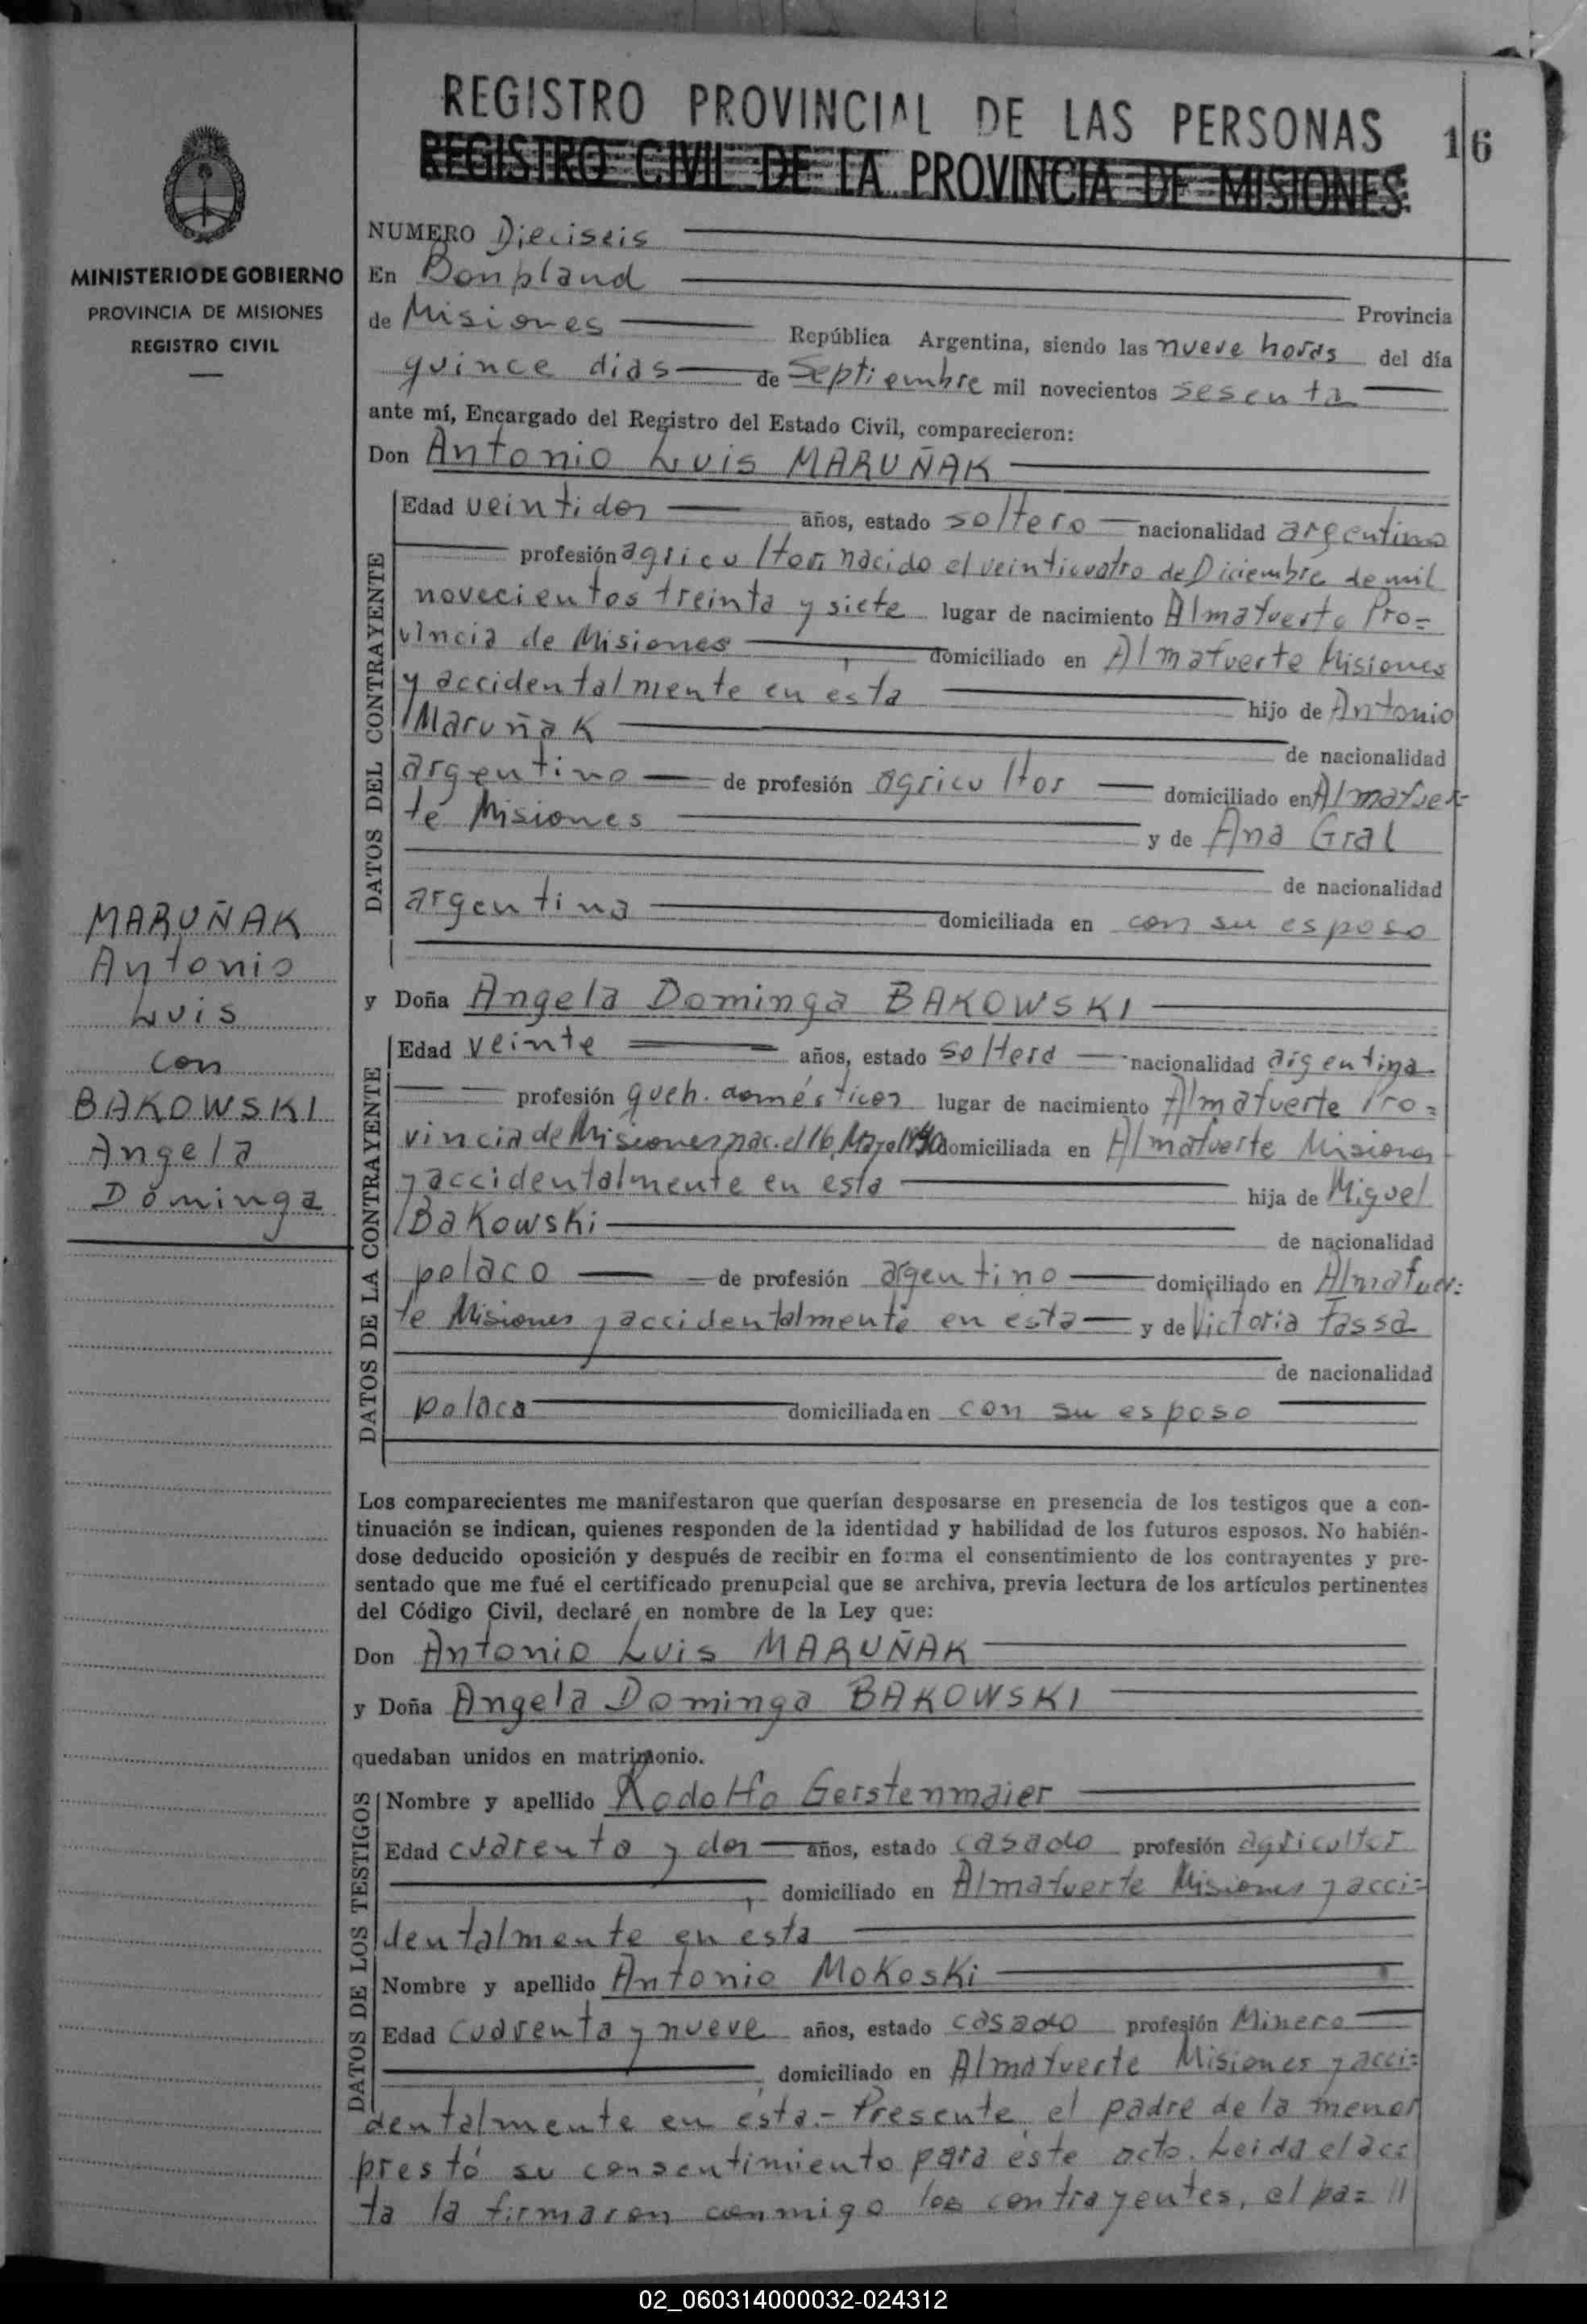 REGISTRO PROVINCIAL DE LAS PERSONAS
16
REGISTRO CIVIL DE LA PROVINCIA DE MISIONES
MINISTERIO DE GOBIERNO
PROVINCIA DE MISIONES
REGISTRO CIVIL
NUMERO Dieciseis
En Bonpland
Provincia
de Misiones República Argentina, siendo las nueve horas del día
quince dias de Septiembre mil novecientos sesenta
ante mí, Encargado del Registro del Estado Civil, comparecieron:
Don Antonio Luis MARUÑAK
DATOS DEL CONTRAYENTE
Edad veintidos años, estado soltero nacionalidad argentino
profesión agricultor, nacido el veinticuatro de Diciembre de mil
novecientos treinta y siete lugar de nacimiento Almafuerte Pro=
vincia de Misiones domiciliado en Almafuerte Misiones
y accidentalmente en ésta hijo de Antonio
Maruñak de nacionalidad
argentino de profesión agricultor domiciliado en Almafuer-
te Misiones y de Ana Gral
de nacionalidad
argentina domiciliada en con su esposo
MARUÑAK
Antonio
Luis
con
BAKOWSKI
Angela
Dominga
y Doña Angela Dominga BAKOWSKI
DATOS DE LA CONTRAYENTE
Edad veinte años, estado soltera nacionalidad argentina
profesión queh. domésticos lugar de nacimiento Almafuerte Pro=
vincia de Misiones nac. el 16 Mayo 1940 domiciliada en Almafuerte Misiones
y accidentalmente en esta hija de Miguel
Bakowski de nacionalidad
polaco de profesión argentino domiciliado en Almafuer=
te Misiones y accidentalmente en esta y de Victoria Fassa
de nacionalidad
polaca domiciliada en con su esposo
Los comparecientes me manifestaron que querían desposarse en presencia de los testigos que a con-
tinuación se indican, quienes responden de la identidad y habilidad de los futuros esposos. No habién-
dose deducido oposición y después de recibir en forma el consentimiento de los contrayentes y pre-
sentado que me fué el certificado prenupcial que se archiva, previa lectura de los artículos pertinentes
del Código Civil, declaré en nombre de la Ley que:
Don Antonio Luis MARUÑAK
y Doña Angela Dominga BAKOWSKI
quedaban unidos en matrimonio.
DATOS DE LOS TESTIGOS
Nombre y apellido Rodolfo Gerstenmaier
Edad cuarenta y dos años, estado casado profesión agricultor
domiciliado en Almafuerte Misiones y acci=
dentalmente en esta
Nombre y apellido Antonio Mokoski
Edad cuarenta y nueve años, estado casado profesión Minero
domiciliado en Almafuerte Misiones y acci=
dentalmente en ésta.- Presente el padre de la menor
prestó su consentimiento para éste acto. Leida el ac=
ta la firmaron conmigo los contrayentes, el pa= //
02_060314000032-024312